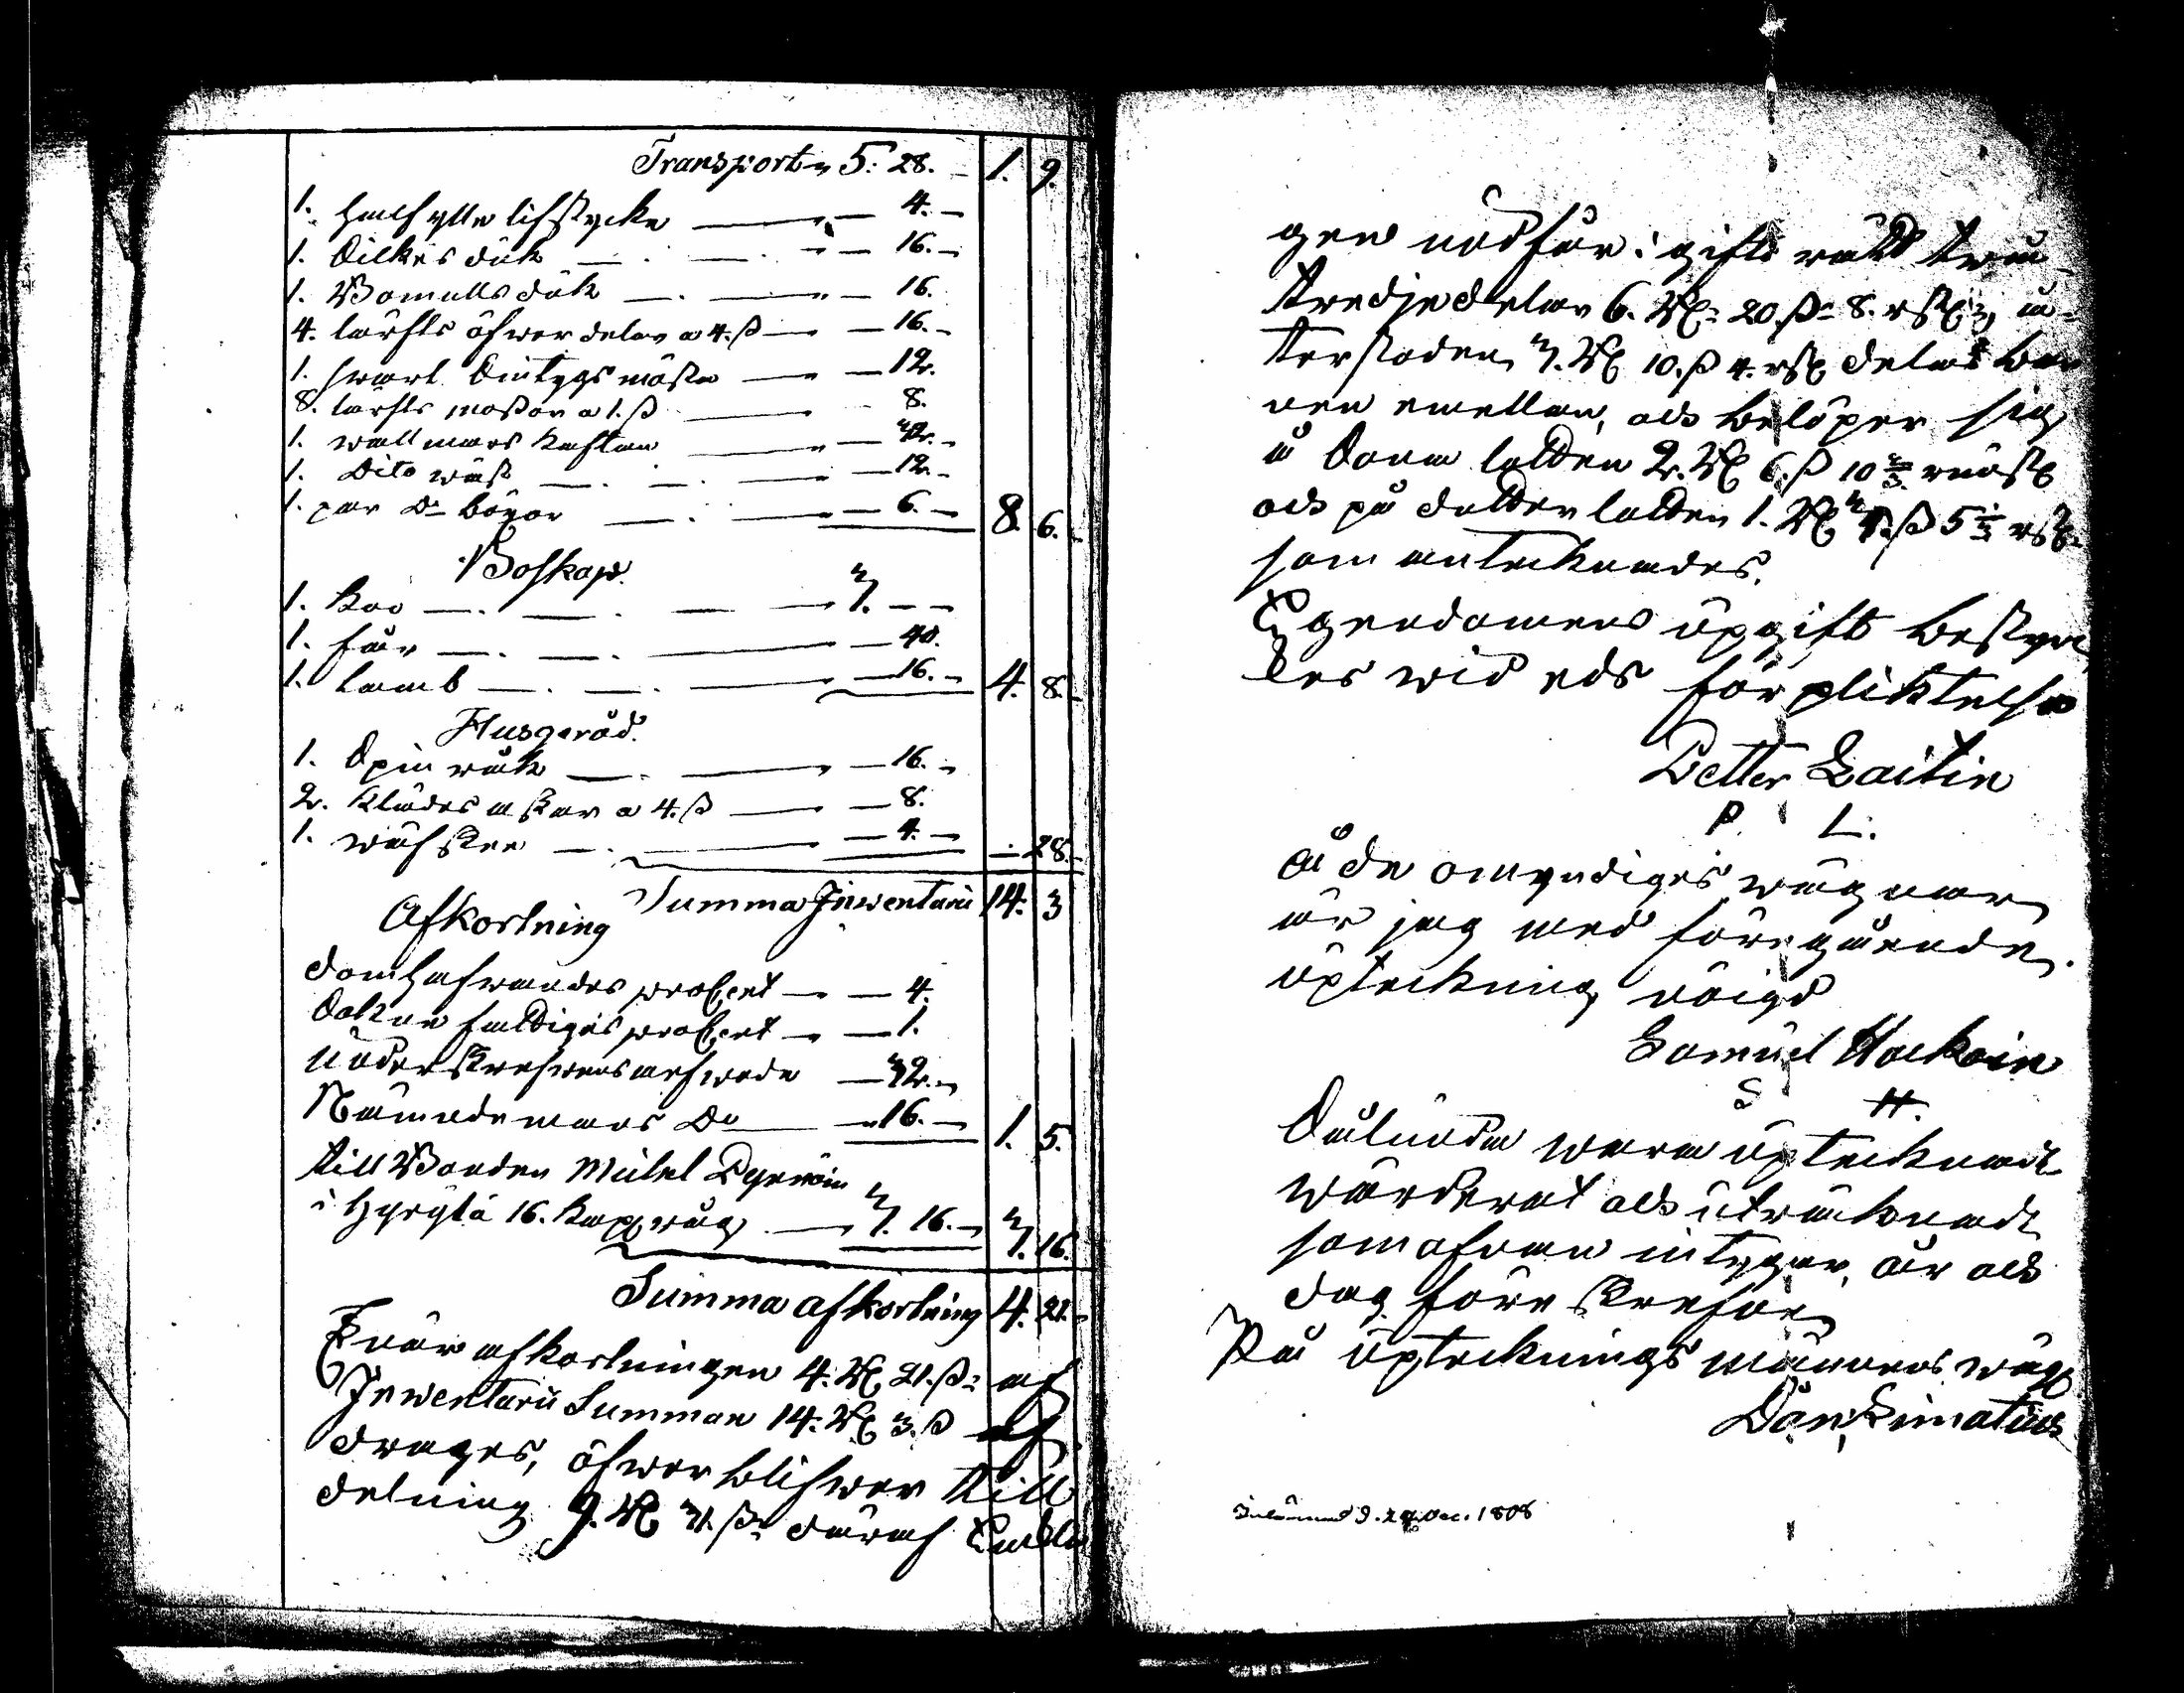 Transport 5: 28. 1. 9.
1. halfylle lifstycke 4.
1. Silkes duk 16.
1. Bomulls duk 16.
4. lärfts öfwerdelar a 4. ß 16.
1. swart Sintygs mössa 12.
8. lärfts mössor a 1. ß 8.
1. wallmars kaftan 32.
1. Dito wäst 12.
1. par Do böxor 6. 8. 6.
Boskap.
1. Koo 3.
1. får 40.
1. Lamb 16. 4. 8.
Husgeråd.
1. Spin råck 16.
2. Klädes askar a 4. ß 8.
1. wäfsked 4. 28.
Summa Inwentarii 14. 3
Afkortning
domhafwandes procent 4.
Sokne fattigas procent 1.
Underskrefwens arfwode 32.
Nämndemans Do 16. 1. 5.
till Bonden Mickel
i Hyrylä 16. kapp råg 3. 16. 3. 16.
Summa afkortning 4. 21.
När afkortningen 4. Rd 21. ß af
Inwentarii Summan 14. Rd 3. ß af
drages, öfwerblifwer till
delning 9. Rd 31. ß däraf Enklin
gen undfår i gifto rätt twå
tredjedelar 6. Rd 20. ß 8. rst, å
terstoden 3. Rd 10. ß 4. rst delas bar
nen emellan, och belöper sig
å Sona lotten 2. Rd 6. ß 10 2/3 rust
och på dotter lotten 1. Rd ß 5 1/3 rst
som antecknades.
Egendomens upgift bestyrc
kes wid eds förpliktelse
Petter Laitin
P L.
å de omyndigas wägnar
är jag med föregående
upteckning nöigd
Samuel Hackain
S H.
Sålunda wara uptecknadt
wärderat och uträcknadt
som ofwan intygar, År och
dag före skrefne
På upteckningsmännens wägn
Dan:
Inlämnad d. 29 Dec. 1808